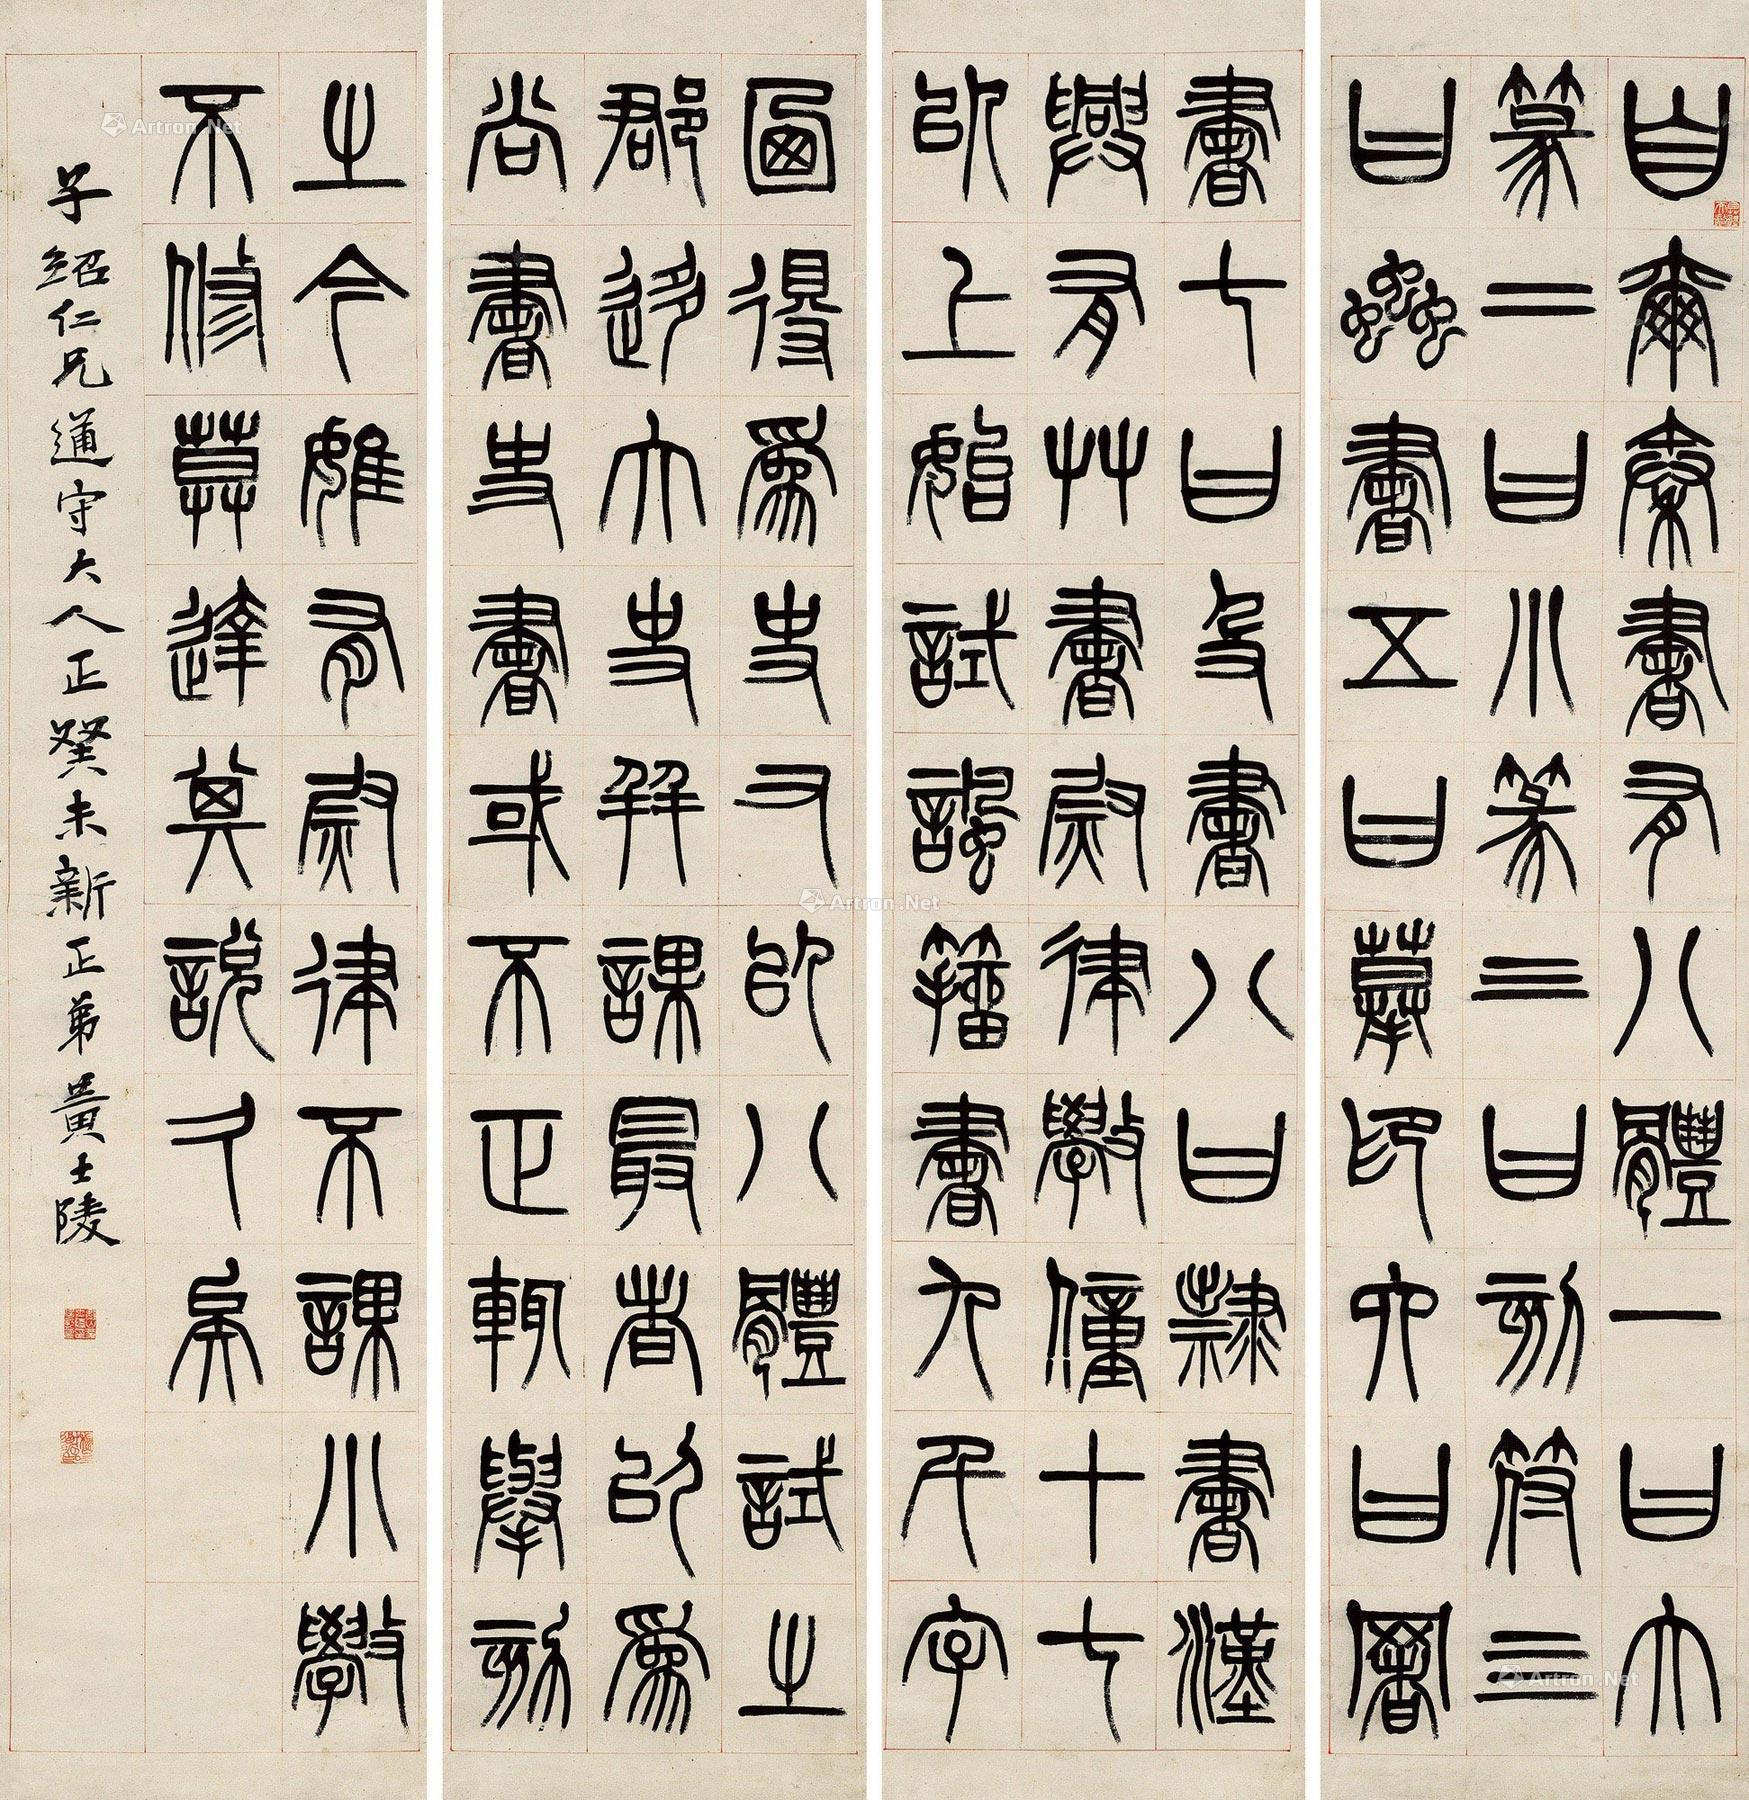 自爾秦書有八體一曰大
篆二曰小篆三曰刻符亖
曰蟲書五曰摹印六曰署
書七曰殳書八曰隸書漢
興有艸書尉律學僮十七
以上始試諷籀書九千字
得爲吏又以八體試之
郡移大史并課最者以爲
尚書史書或不正輒舉劾
之今雖有尉律不課小學
不修莫達其說久矣
子紹仁兄通守大人正癸未新正弟黃士陵
Artron.Net
Artron.Net
Artron.Net